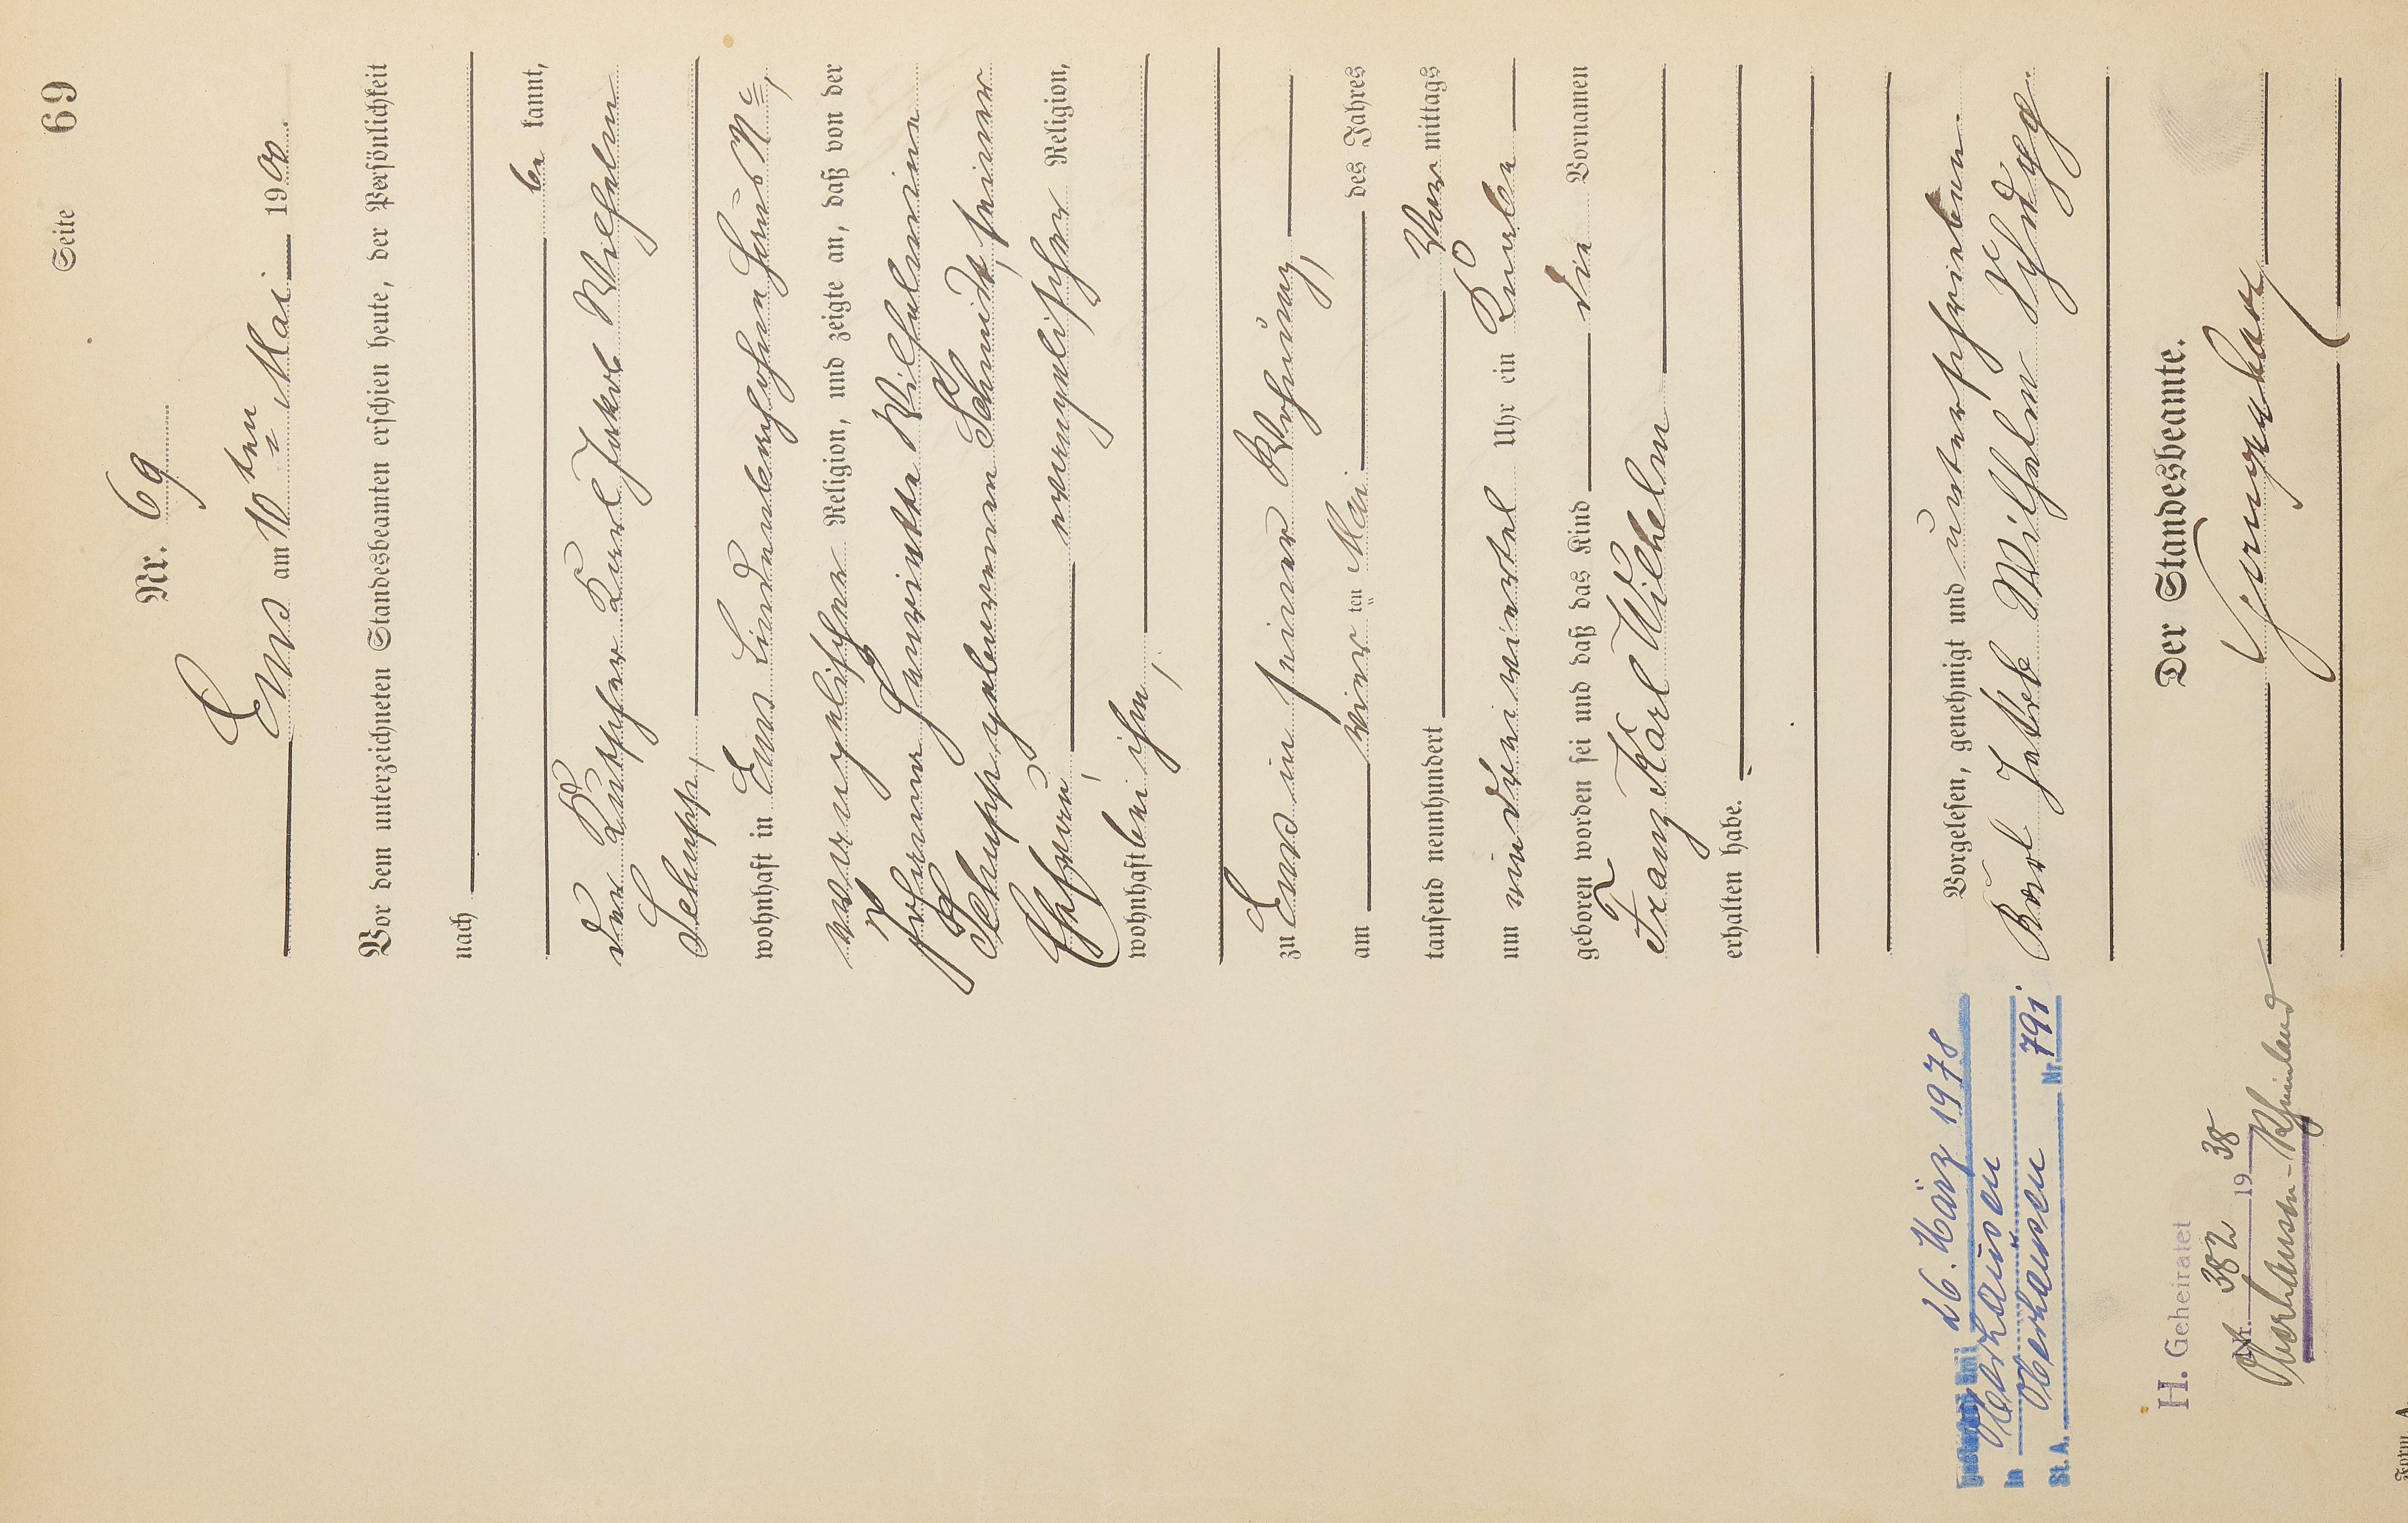 Seite 69
Nr. 69
Ems am 10ten Mai 1900.
Vor dem unterzeichneten Standesbeamten erschien heute, der Persönlichkeit
nach
be kannt,
der Küfer Karl Jakob Wilhelm
Schupp,
wohnhaft in Ems
evangelischer Religion, und zeigte an, daß von der
Johanna Henriette Wilhelmine
Schupp geborenen Schmidt, seiner
Ehefrau, evangelischer Religion,
wohnhaft bei ihm,
zu Ems in seiner Wohnung,
am vierten Mai des Jahres
tausend neunhundert Vor mittags
um ein drei viertel Uhr ein Knabe
geboren worden sei und daß das Kind die Vornamen
Franz Karl Wilhelm
erhalten habe.
Vorgelesen, genehmigt und unterschrieben.
Karl Jakob Wilhelm Schupp
Der Standesbeamte.
Gestorben am 26. März 1978
in Oberhausen
St. A. Oberhausen Nr. 791
H. Geheiratet
Nr. 382 1938
Oberhausen-Rheinland
Form. A.